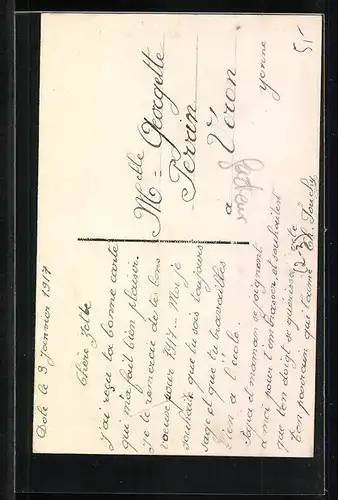 Dole le 3 Janvier 1917
Chère Zelbe
J'ai reçu ta bonne carte
qui m'a fait bien plaisir.
Je te remercie de tes bons
voeux pour 1917. Moi je
souhaite que tu sois toujours
sage et que tu travailles
bien à l'école.
Papa et maman se joignent
a moi pour t'embrasser et souhaitent
que ton doigt se guerisse vite
ton parrain qui t'aime
Ch. Souchy
Melle Georgette
Pevan
a Véron
Yonne